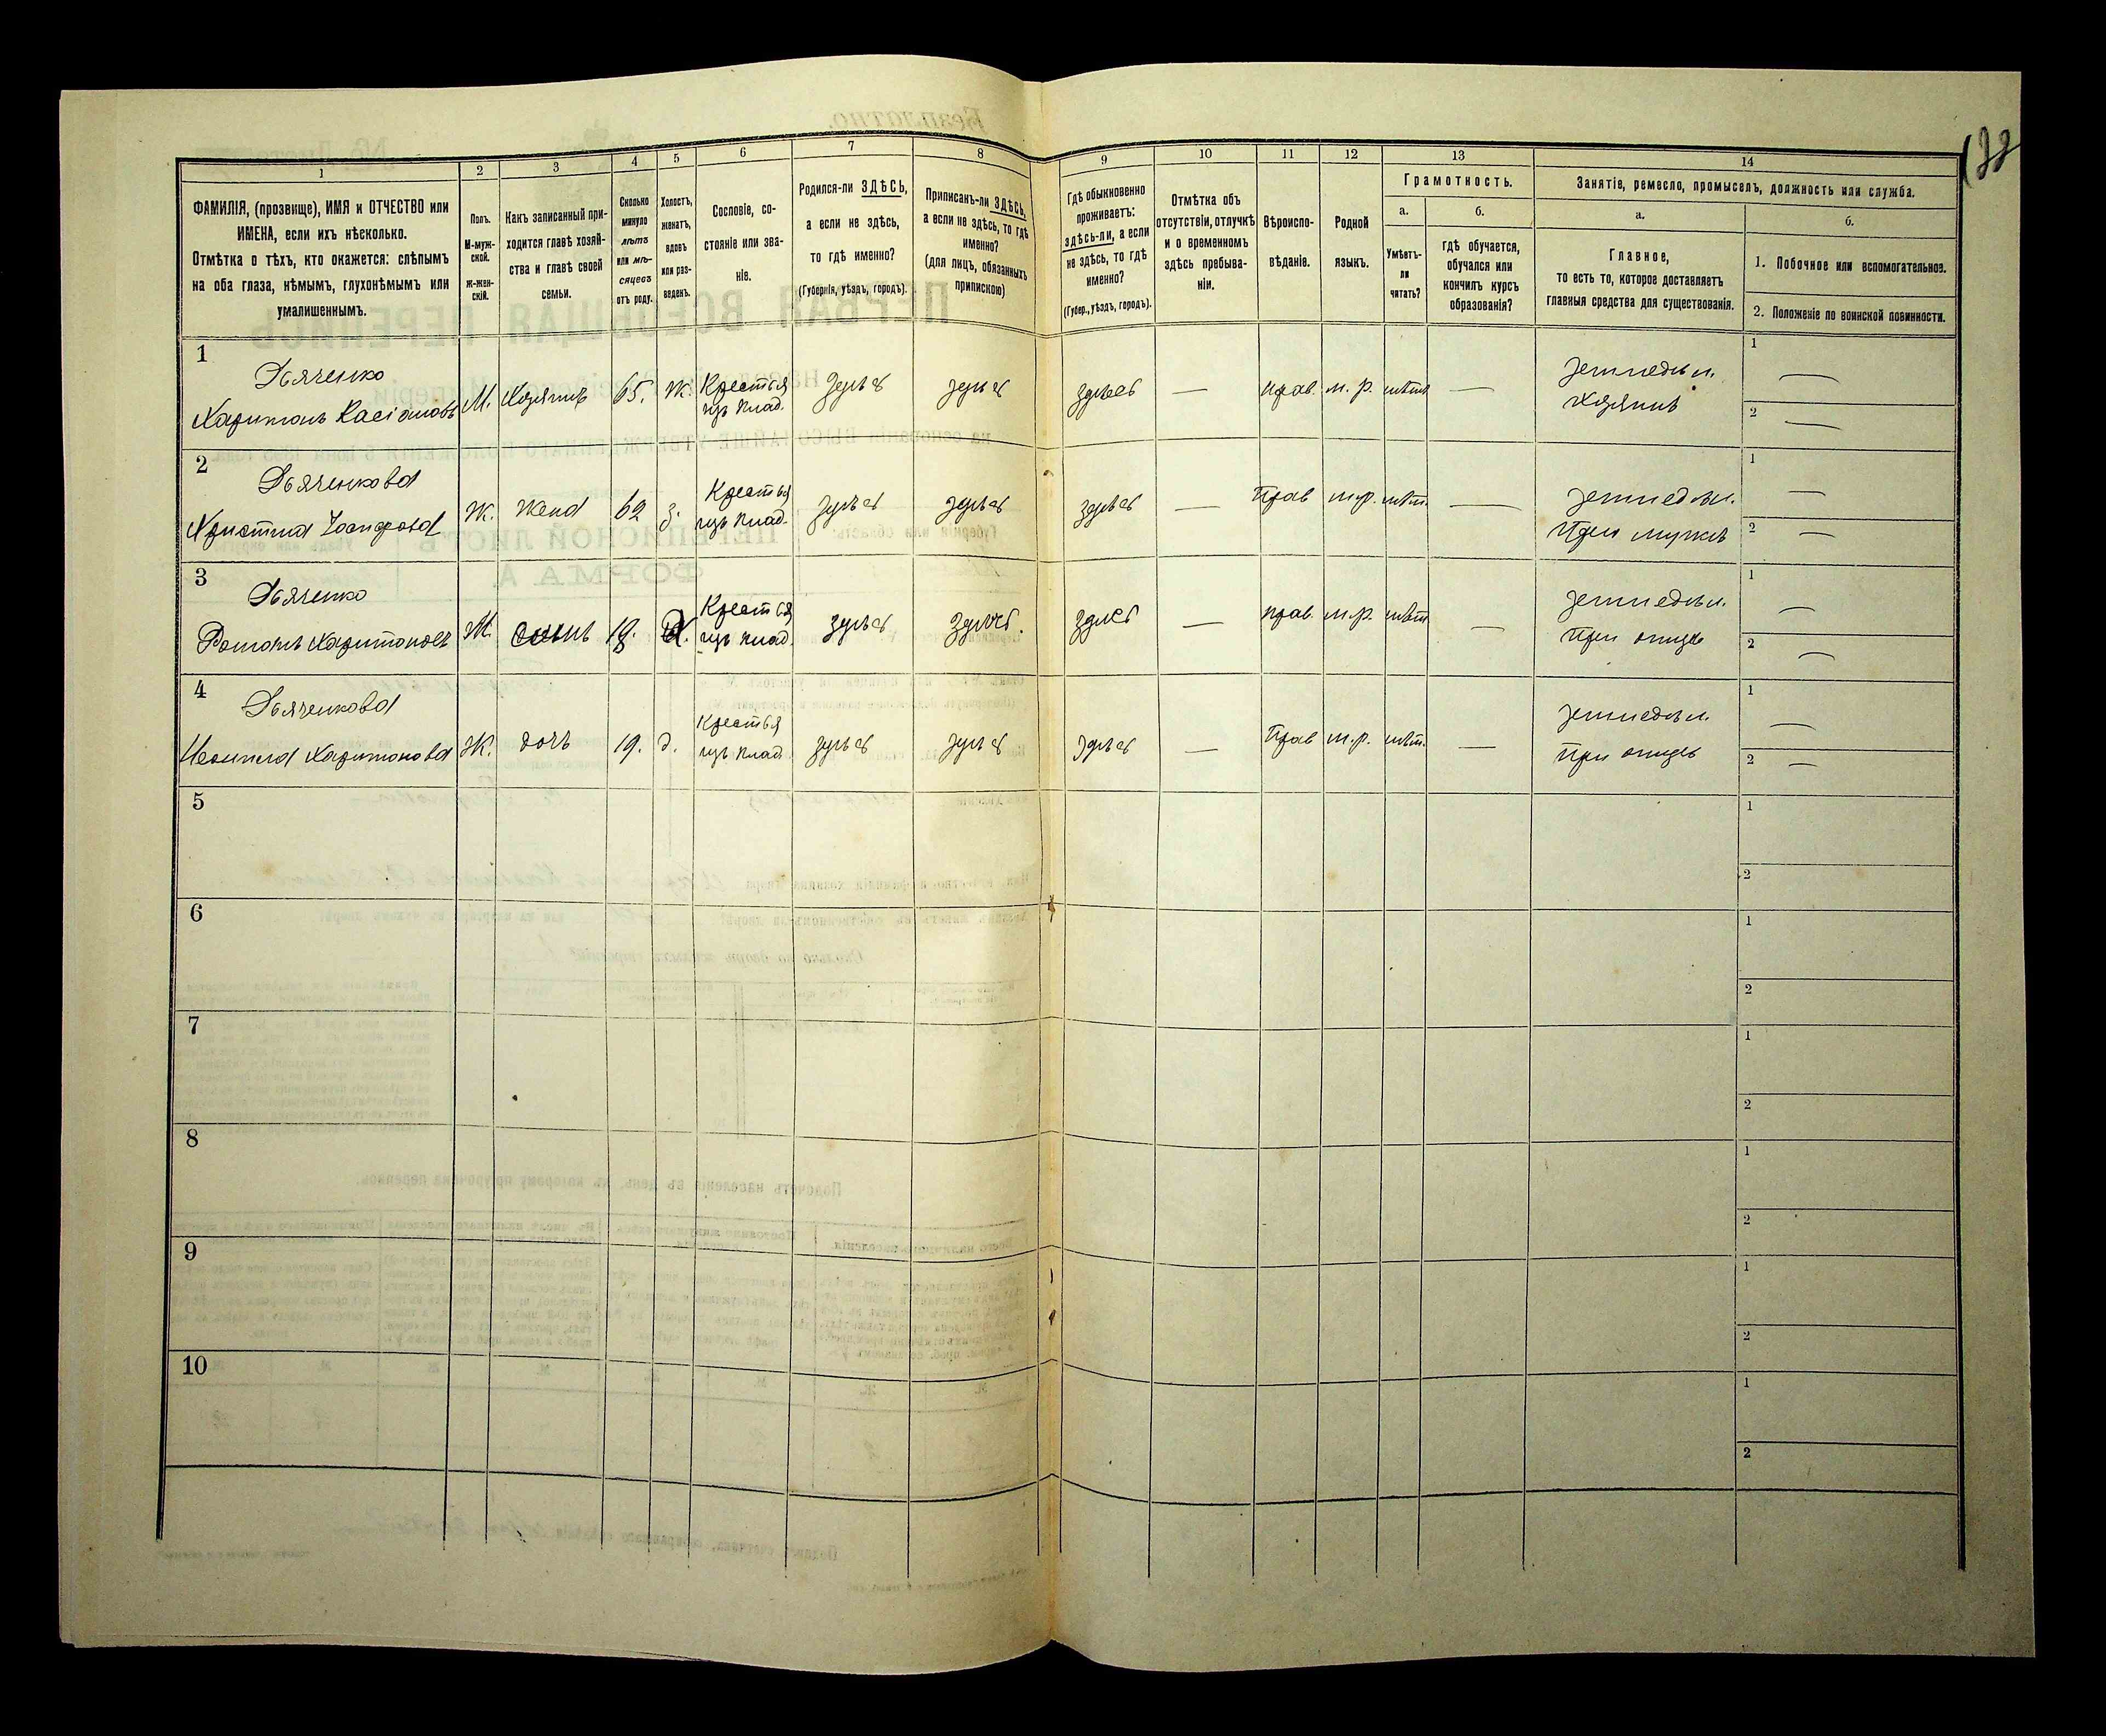 122
1 2 3 4 5 6 7 8 9 10 11 12 13 14
ФАМИЛІЯ, (прозвище), ИМЯ и ОТЧЕСТВО или
ИМЕНА, если ихъ нѣсколько.
Отмѣтка о тѣхъ, кто окажется: слѣпымъ
на оба глаза, нѣмымъ, глухонѣмымъ или
умалишеннымъ.
Полъ.
М-муж-
ской.
Ж-жен-
скій.
Какъ записанный при-
ходится главѣ хозяй-
ства и главѣ своей
семьи.
Сколько
минуло
лѣтъ
или мѣ-
сяцевъ
отъ роду.
Холостъ,
женатъ,
вдовъ
или раз-
веденъ.
Сословіе, со-
стояніе или зва-
ніе.
Родился-ли ЗДѢСЬ,
а если не здѣсь,
то гдѣ именно?
(Губернія, уѣздъ, городъ).
Приписанъ-ли ЗДѢСЬ,
а если не здѣсь, то гдѣ
именно?
(для лицъ, обязанныхъ
припискою)
Гдѣ обыкновенно
проживаетъ:
здѣсь-ли, а если
не здѣсь, то гдѣ
именно?
(Губер., уѣздъ, городъ).
Отмѣтка объ
отсутствіи, отлучкѣ
и о временномъ
здѣсь пребыва-
ніи.
Вѣроиспо-
вѣданіе.
Родной
языкъ.
Грамотность.
а.
Умѣетъ-
ли
читать?
б.
гдѣ обучается,
обучался или
кончилъ курсъ
образованія?
Занятіе, ремесло, промыселъ, должность или служба.
а.
Главное,
то есть то, которое доставляетъ
главныя средства для существованія.
б.
1. Побочное или вспомогательное.
2. Положеніе по воинской повинности.
1
Дьяченко
Харитонъ Касіановъ
М. Хозяинъ 65. ж. Крестья
изъ влад.
здѣсь здѣсь здѣсь — прав. м. р. нѣтъ —
земледѣл.
Хозяинъ
1 —
2 —
2
Дьяченкова
Христина Іосифова
Ж. Жена 62 з. Крестья
изъ влад.
здѣсь здѣсь здѣсь — прав м.р. нѣт. —
земледѣл.
При мужѣ
1 —
2 —
3
Дьяченко
Романъ Харитоновъ
М. сынъ 18. Х. Крестья
изъ влад.
здѣсь здѣсь. здѣсь — прав. м.р. нѣт —
земледѣл.
При отцѣ
1 —
2 —
4
Дьяченкова
Неонила Харитонова
Ж. дочь 19. д. Крестья
изъ влад
здѣсь здѣсь здѣсь — Прав м.р. нѣт. —
земледѣл.
При отцѣ
1 —
2 —
5
1
2
6
1
2
7
1
2
8
1
2
9
1
2
10
1
2